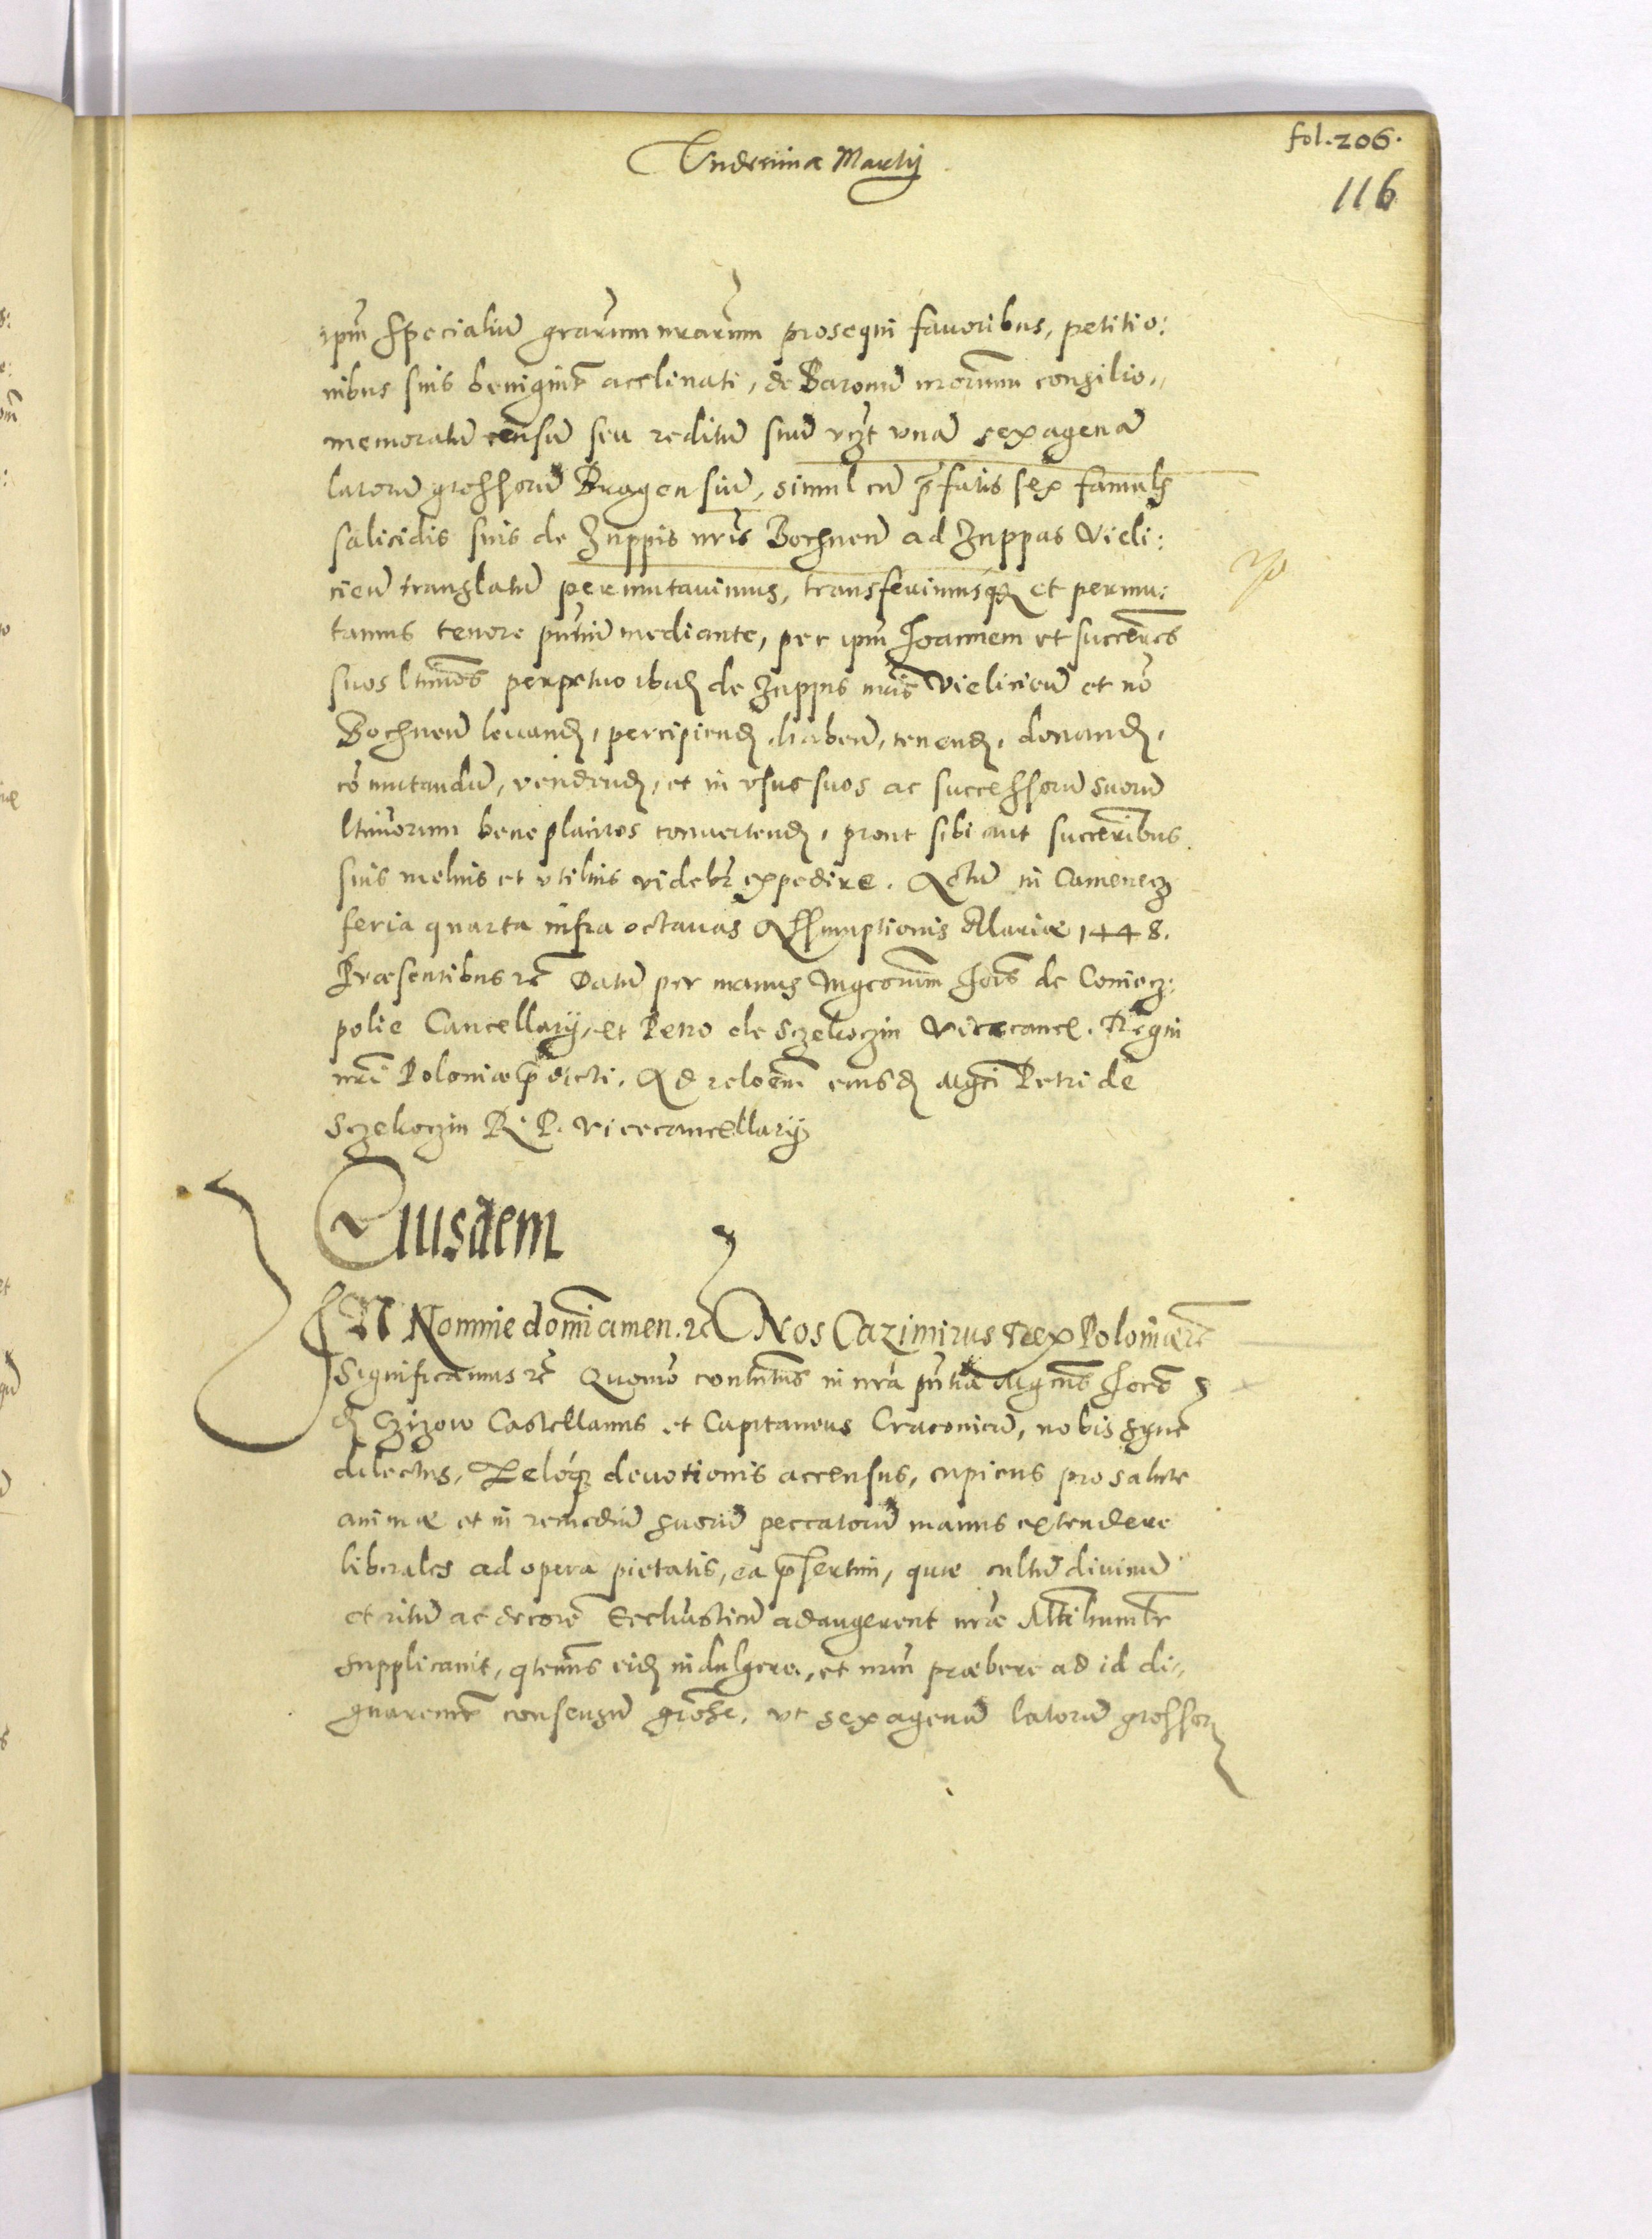 Undecima Martij
fol. 206.
116
ipm̃ specialiũ grarum nrarum prosequi favoribus, petitio:
nibus suis benignit̃ acclinati, de Baronũ nrorum consilio,,
memoratũ censũ seu reditũ suũ vcz̃t unã sexagenã
latorũ grossorũ Pragen siũ, simul cũ p̃fatis sex famulis
salicidis suis de Zuppis nr̃is Bochneñ ad Zuppas Vieli:
cieñ translatũ permutavimus, transferimusq̃ et permu:
tamus tenore pñtiũ mediante, per ipm̃ Joannem et succẽres
suos ltimos perpetuo ibid de Zuppis nr̃is Vielicieñ et nõ
Bochneñ levand, percipiend, habeñ, tenend, donand,
cõmutandũ, vendend, et in usus suos ac successorũ suorũ
ltimorum beneplacitos convertend, prout sibi aut succẽribus
suis melius et utilius videbr̃ expedire. Actũ in Camenecz
feria quarta infra octavas Assumptionis Mariæ 1448.
Præsentibus rc̃ Datũ per manus Mgcorum Jois de Coniecz:
polie Cancellarij, et Petro de Sczekoczin Vicecancel. Regni
nr̃i Poloniæ p̃dicti. Ad relõem eiusd Mgci Petri de
Sczekoczin R. P. vicecancellarij
Eiusdem
IN Nomine domĩ amen. rc̃ Nos Cazimirus Rex Poloniæ rc̃
Significamus rc̃ Quomõ constitutus in nrã pñtia Mgcus Joẽs
d Czizow Castellanus et Capitaneus Cracovieñ, nobis syncẽ
dilectus, Zeloq̃ devotionis accensus, cupiens pro salute
animæ et in remediũ suorũ peccatorũ manus extendere
liberales ad opera pietatis, ea p̃sertim, quæ cultũ divinũ
et ritũ ac decorẽ Eccliasticũ adaugerent nræ Mti humilr̃
supplicavit, qtenus eid indulgere, et nrũ præbere ad id di,,
gnaremur consensũ grõse, ut sexagenã latorũ grossor